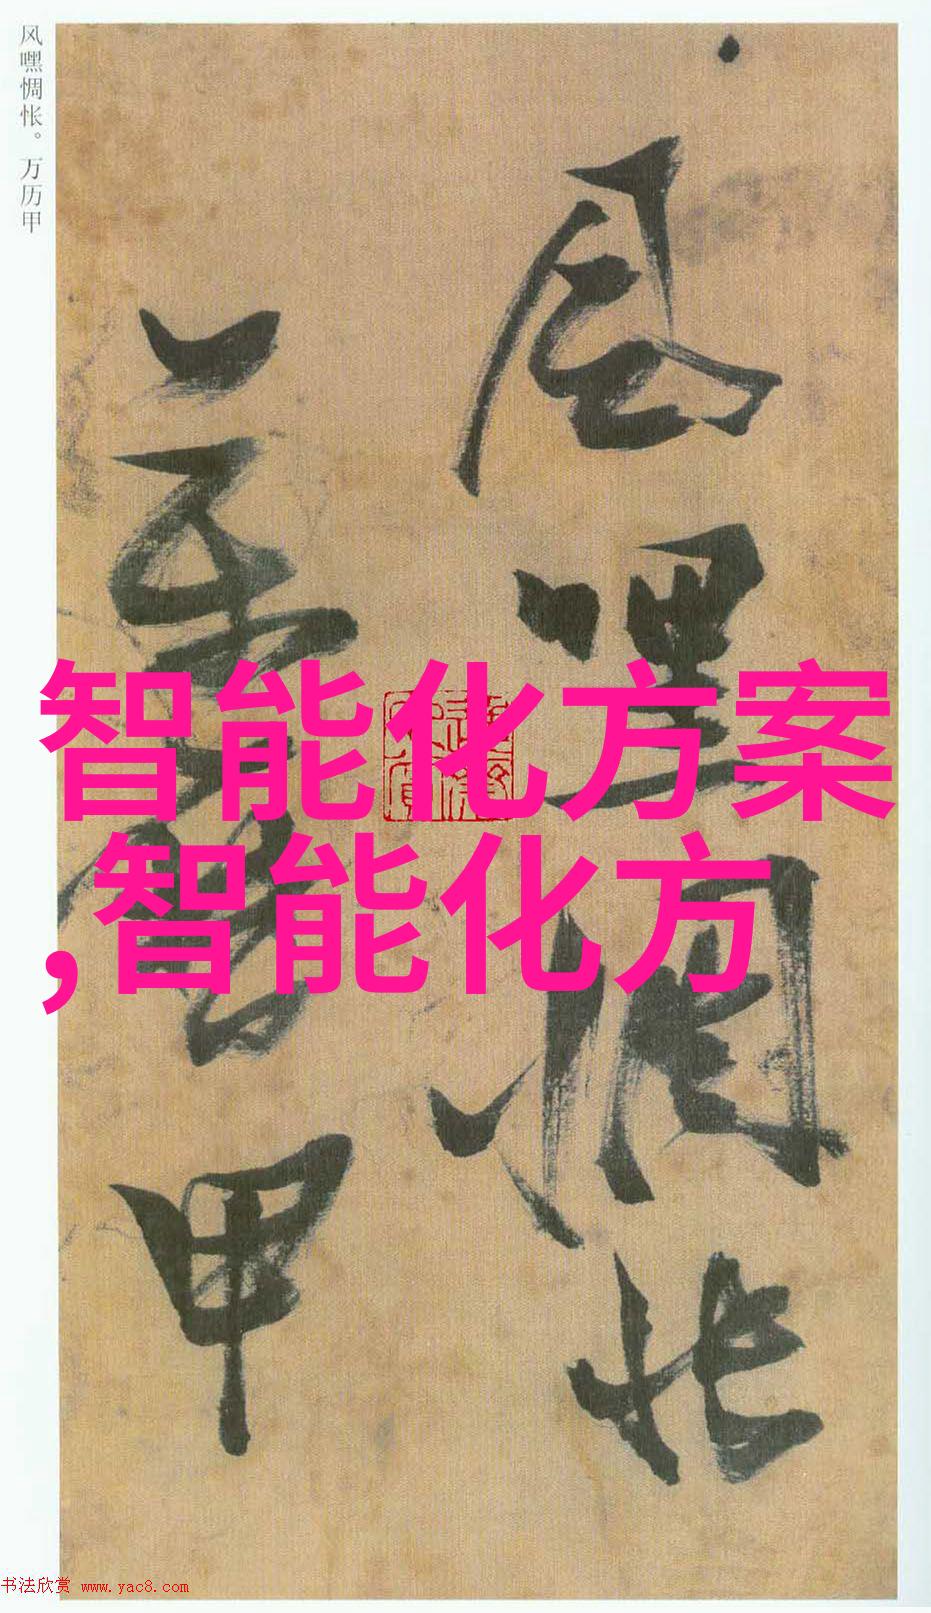 风嘿惆怅。万历甲
风嘿惆怅
万历甲
智能化方案
,智能化方
书法欣赏 www.yac8.com